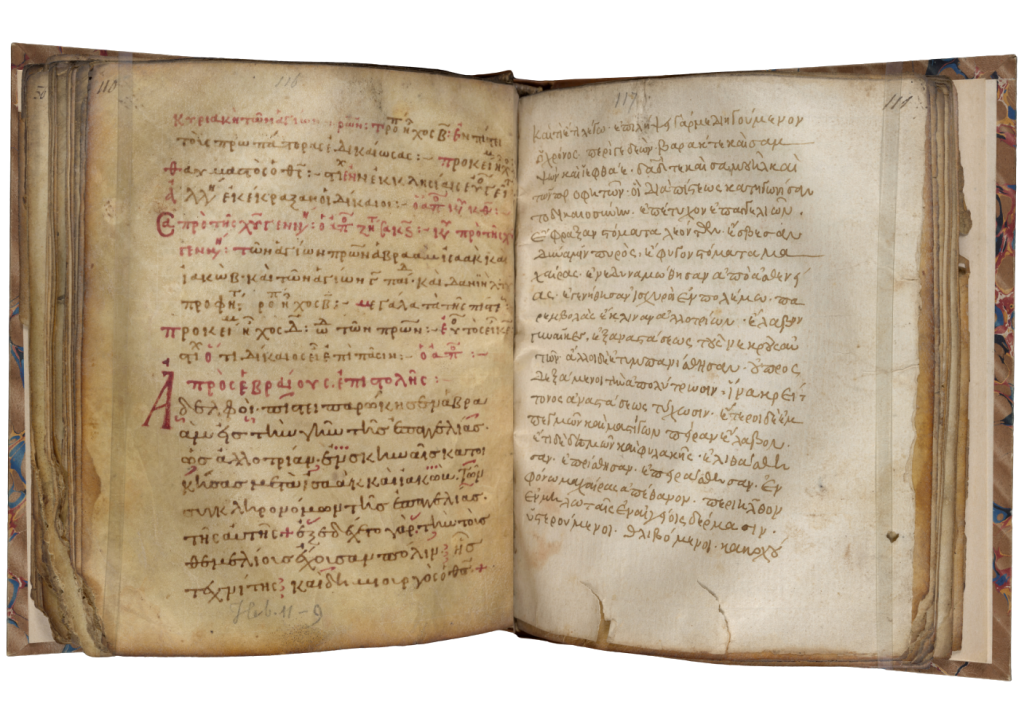 110
116
κυριακὴ τῶν ἁγίων πρῶν:
τοὺς προπάτορας ἐδικαίωσας:
θαυμαστὸς ὁ θς:
Ἀλλ ἐκέκραξαν οἱ δίκαιοι:
πρὸ τῆς χυ γεννη
γεννη: τῶν ἁγίων πρῶν ἀβρααμ ἰσαακ καὶ
ἰακωβ· καὶ τῶν ἁγίων γ παί· καὶ δανιηλ
προφή ἦχος β:
προκεί ἦχος δ: ὠ τῶν πρῶν:
ὅτι δίκαιος εἶ ἐπὶ πᾶσιν:
πρὸς ἑβραίους ἐπιστολῆς:
Ἀδελφοί· πίστει παρώκησεν ἀβρα
ἀμ εἰς τὴν γῆν τῆς ἐπαγγελίας·
ὡς ἀλλοτρίαν· ἐν σκηναῖς κατοι
κήσας μετὰ ἰσαὰκ καὶ ἰακωβ· τῶν
συγκληρονόμων τῆς ἐπαγγελίας·
τῆς αὐτῆς + ἐξεδέχετο γὰρ τὴν τοὺς
θεμελίους ἔχουσαν πόλιν· ἧς
τεχνίτης καὶ δημιουργὸς ὁ θς +
Heb. 11-9
117
111
καὶ τί ἔτι λέγω· ἐπιλήψει γάρ με διηγούμενον
ὁ χρόνος· περὶ γεδεών· βαράκ τε καὶ σαμ
ψὼν καὶ ἰεφθάε· δαδ τε καὶ σαμουὴλ καὶ
τῶν προφητῶν· οἳ διὰ πίστεως κατηγωνίσαν
το δικαιοσύνην· ἐπέτυχον ἐπαγγελιῶν·
Ἔφραξαν στόματα λεόντων· ἔσβεσαν
δύναμιν πυρός· ἔφυγον στόματα μα
χαίρας· ἐνεδυναμώθησαν ἀπὸ ἀσθενεί
ας· ἐγενήθησαν ἰσχυροὶ ἐν πολέμω· πα
ρεμβολὰς ἔκλιναν ἀλλοτρίων· ἔλαβον
γυναῖκες ἐξ ἀναστάσεως τοὺς νεκροὺς αὐ
τῶν ἄλλοι δὲ ἐτυμπανίσθησαν· οὐ προς
δεξάμενοι τὴν ἀπολύτρωσιν· ἵνα κρείτ
τονος ἀναστάσεως τύχωσιν· ἕτεροι δὲ ἐμ
πεγμῶν καὶ μαστίγων πῆραν ἔλαβον·
ἔτι δὲ δεσμῶν καὶ φυλακῆς· ἐλιθάσθη
σαν· ἐπρίσθησαν· ἐπηράσθησαν· ἐν
φόνω μαχαίρας ἀπέθανον· περιῆλθον
ἐν μηλωταῖς ἐν αἰγείοις δέρμασιν·
ὑστερούμενοι· θλιβόμενοι· κακουχού